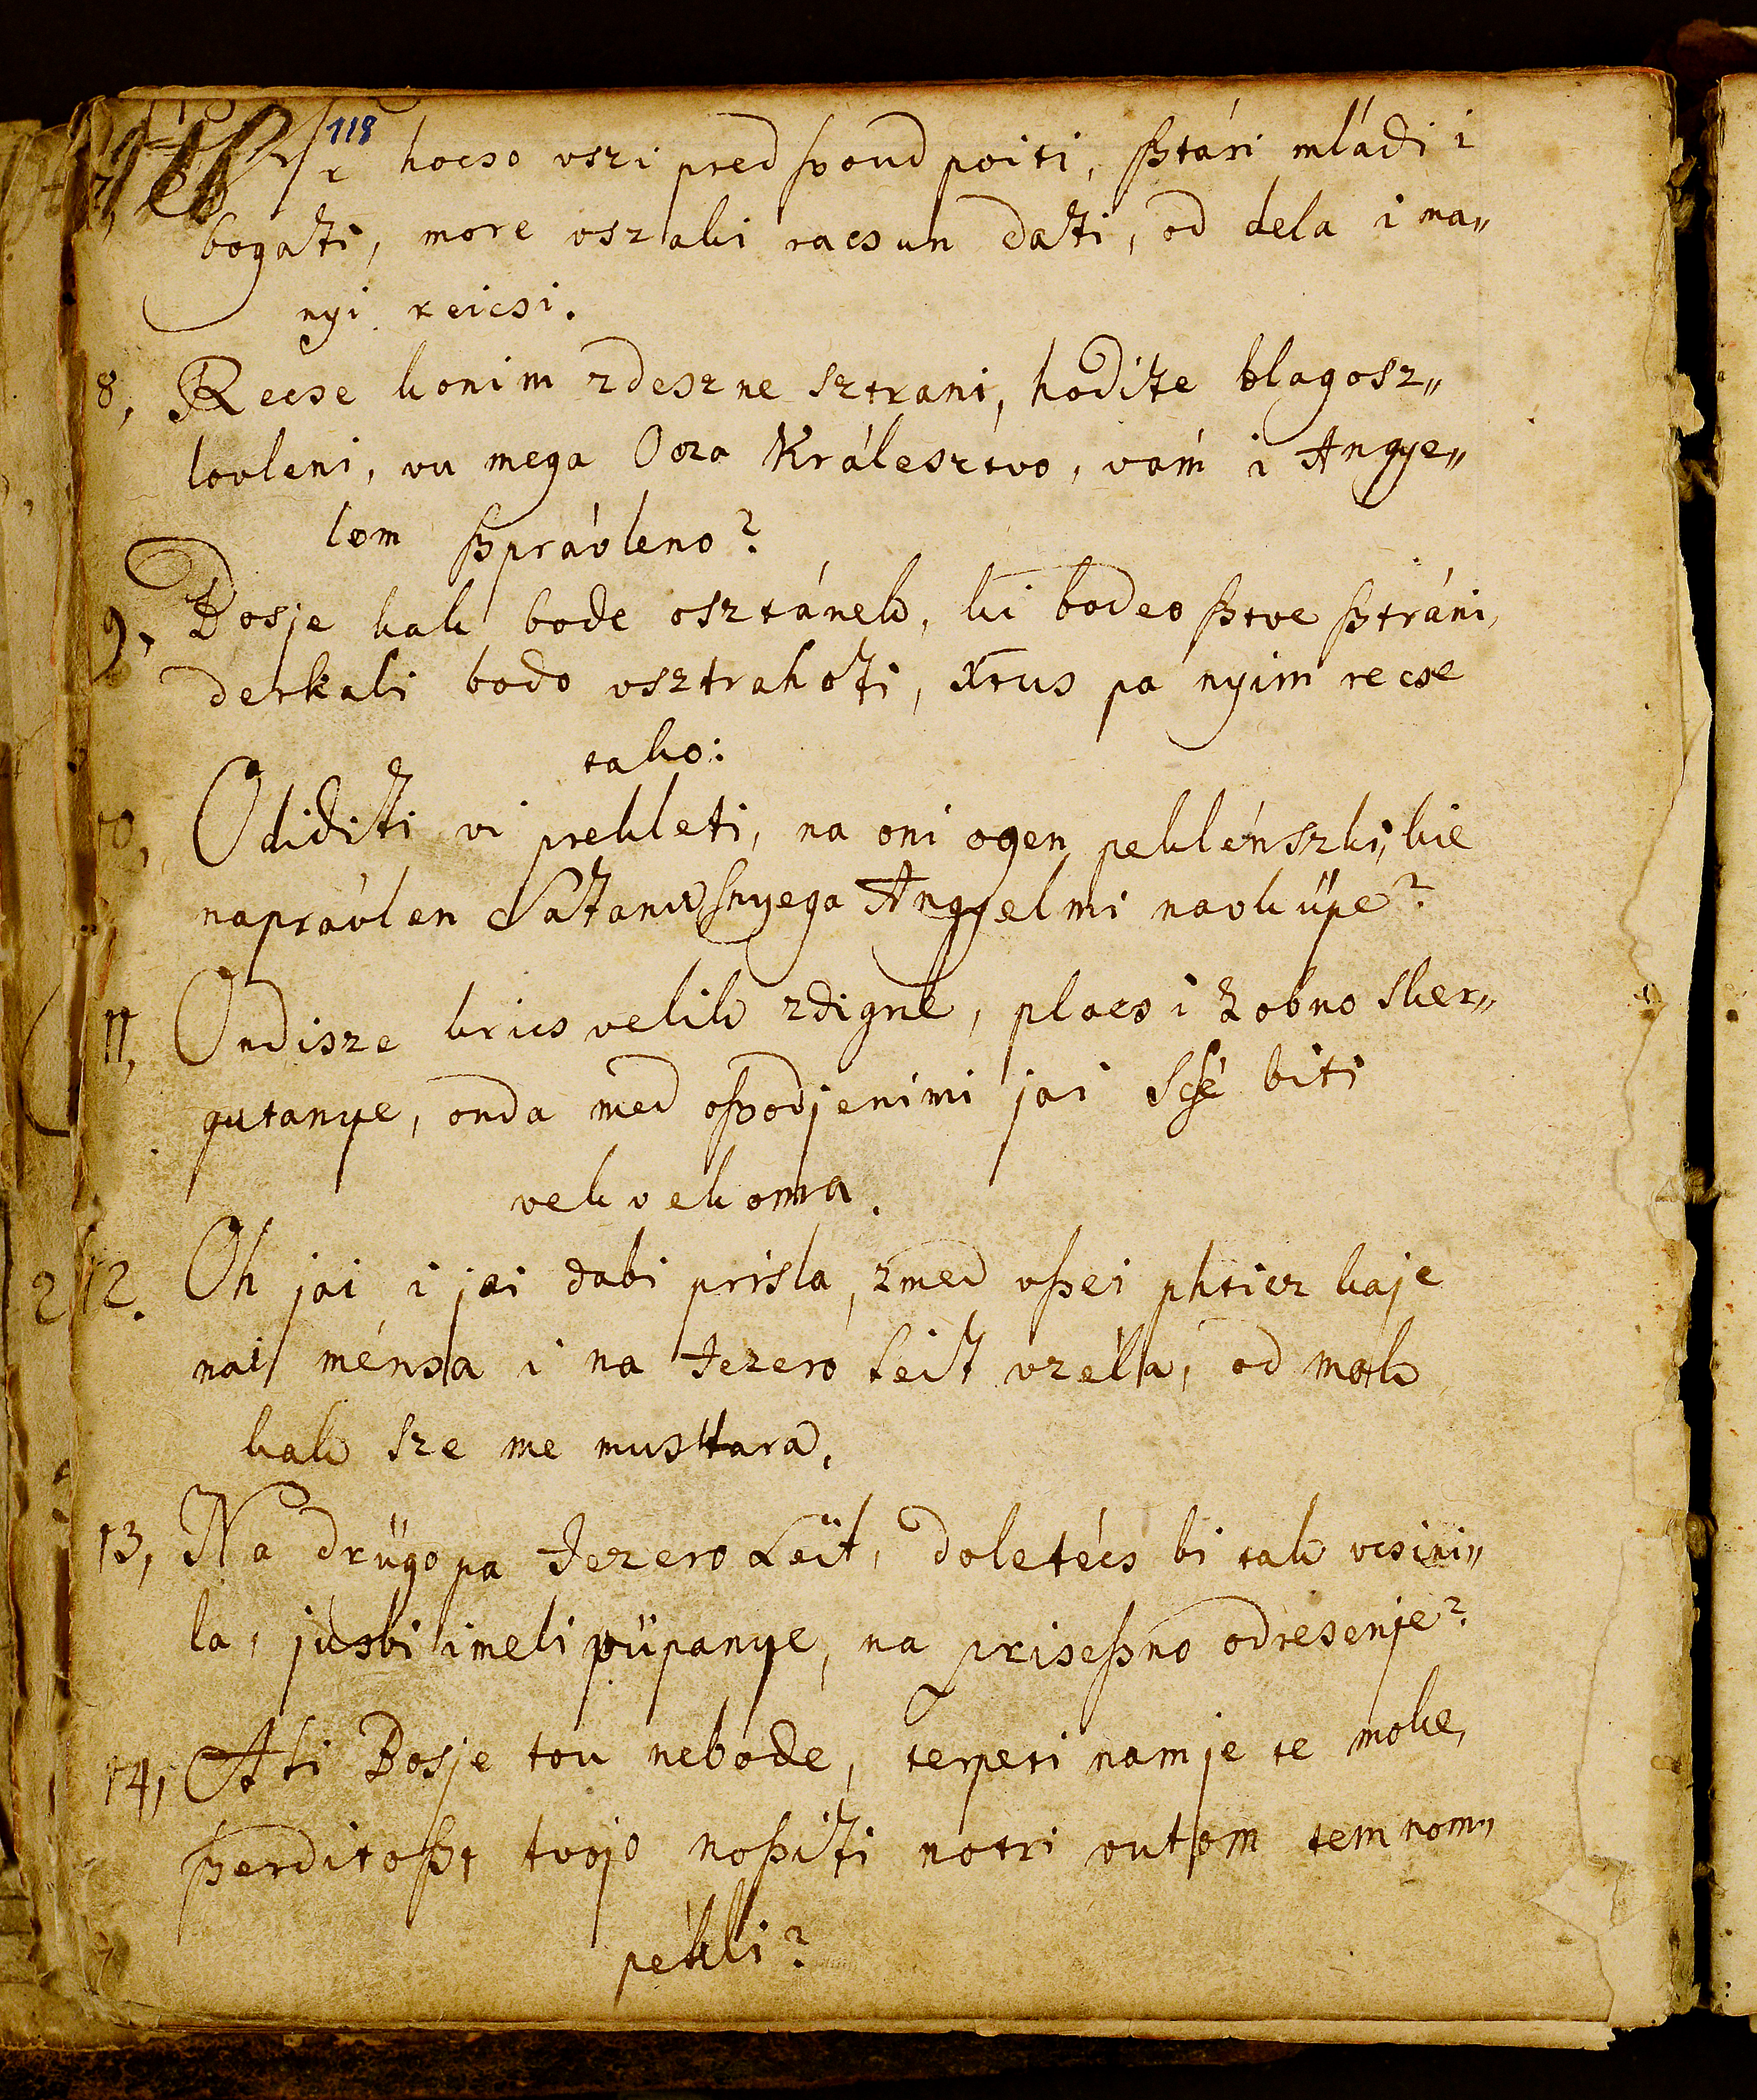 118
7, hocso vszi pred ßoud poiti, ßtári mládi i
bogati, more vszaki racsun dati, od dela i ma„
nyi reicsi.
8, Recse konim zdeszne sztrani, hodite blagosz„
lovleni, vu mega Ocza Králesztvo, vám i Angye„
lom ßprávleno?
9. Bosje kak bode osztánek, ki bodeo ßtve ßtráni,
derkali bodo vsztrahoti, Xtus pa nyim recse
tako:
10, Odiditi vi prekleti, na oni ogen peklénszki, kie
naprávlen Satanu ſnyega Angyelmi navküpe?
11, Ondisze krics velik zdigne, placs i Zobno sker„
gutanye, onda med oßodjenimi jai Scſé biti
vekvekoma.
12. Oh jai i jai dabi prisla, zmed vßei phticz kaje
nai ménsa i na Jezero Leit vzéla, od mak
kak sze me mustara,
13, Na drügo pa Jezero Leit, doletécs bi tak vcsini„
la, jusbi imeli vüpanye, na priseßno odresenje?
14, Ali Bosje tou nebode, terpeti nam je te moke,
ßerditoßt tvojo noßiti notri vutom temnom„
pekli?